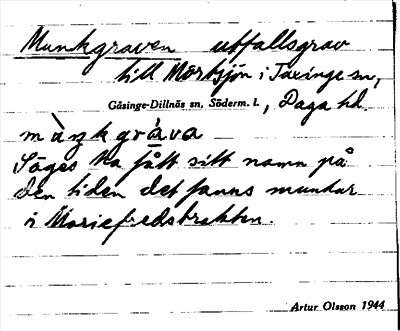 Munkgraven utfallsgrav
till Mörtsjön i Taxinge sn,
Gåsinge-Dillnäs sn, Söderm. l., Daga hd.
mùŋkgrá̀va
Säges ha fått sitt namn på
den tiden det fanns munkar
i Mariefredstrakten.
Artur Olsson 1944